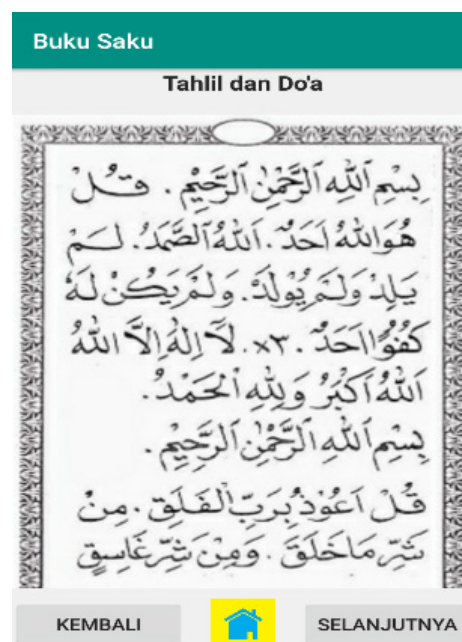 Buku Saku
Tahlil dan Do'a
بِسْمِ ٱللهِ ٱلرَّحْمٰنِ ٱلرَّحِيْمِ . قُلْ
هُوَاللهُ اَحَدٌ . اَللهُ ٱلصَّمَدُ. لَمْ
يَلِدْ وَلَمْ يُوْلَدْ. وَلَمْ يَكُنْ لَهُ
كُفُوًا اَحَدٌ . ×٣. لَآاِلٰهَ اِلَّا اللهُ
اَللهُ اَكْبَرُ وَلِلّٰهِ اْلحَمْدُ.
بِسْمِ ٱللهِ ٱلرَّحْمٰنِ ٱلرَّحِيْمِ .
قُلْ اَعُوْذُ بِرَبِّ اْلفَلَقِ . مِنْ
شَرِّ مَاخَلَقَ . وَمِنْ شَرِّ غَاسِقٍ
KEMBALI
SELANJUTNYA